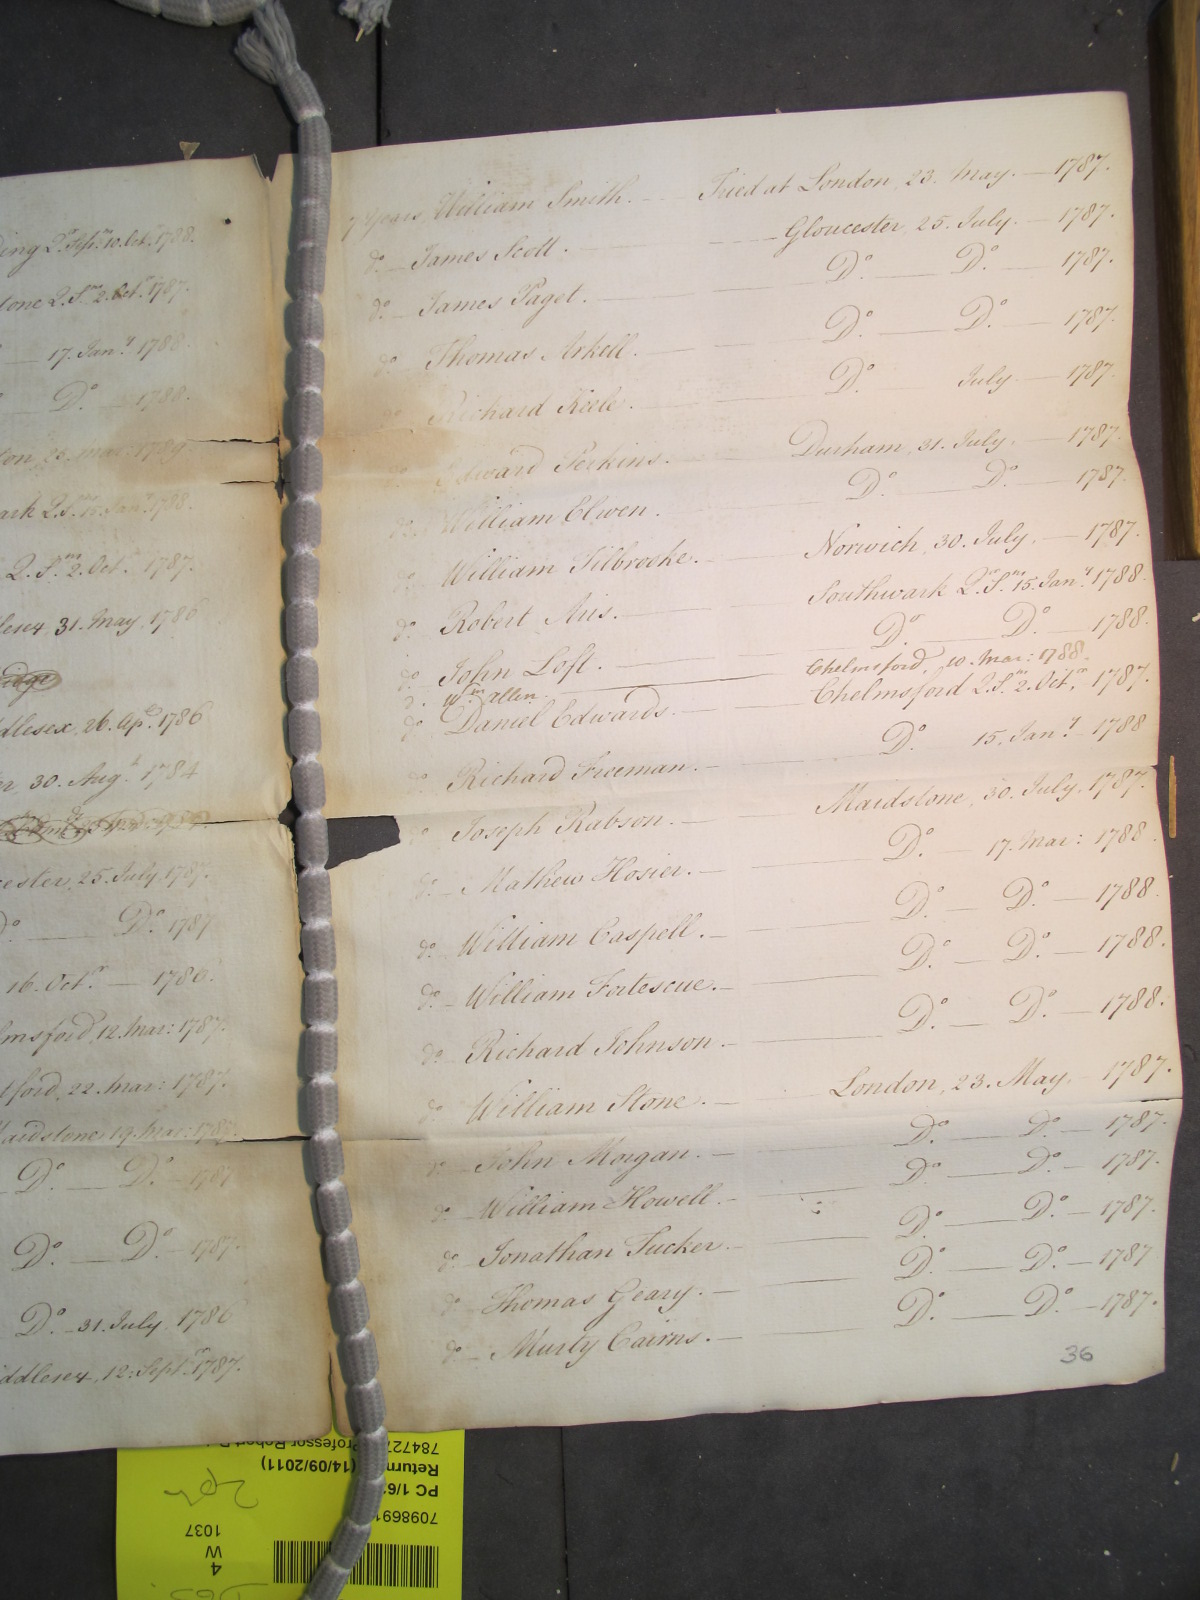 7 Years, William Smith. Tried at London, 23. May. 1787.
do James Scott. Gloucester, 25. July. 1787.
do James Paget. Do. Do. 1787.
do Thomas Arkell. Do. Do. 1787.
do Richard Keele. Do. July 1787.
do Edward Perkins. Durham, 31. July. 1787.
do William Elwen. Do. Do. 1787.
do William Silbrooke. Norwich, 30. July. 1787.
do Robert Aris. Southwark Qr. Sns. 15. Jany. 1788.
do John Loft. Do. Do. 1788.
Wm Allen. Chelmsford, 10. Mar: 1788.
do Daniel Edwards. Chelmsford Q. Sns. 2. Octr. 1787.
do Richard Freeman. Do. 15. Jany. 1788
do Joseph Rabson. Maidstone, 30. July, 1787.
do Mathew Hosier. Do. 17. Mar: 1788.
do William Caspell. Do. Do. 1788.
do William Fortescue. Do. Do. 1788.
do Richard Johnson. Do. Do. 1788.
do William Stone. London, 23. May. 1787.
do John Morgan. Do. Do. 1787.
do William Howell. Do. Do. 1787.
do Jonathan Tucker. Do. Do. 1787.
do Thomas Geary. Do. Do. 1787
do Murty Cairns. Do. Do. 1787.
36
ing Qr. Sns. 10. Oct. 1788.
tone Q. Sns. 2. Oct. 1787.
17. Jany. 1788
Do. 1788.
Q. Sns. 2. Oct. 1787.
31. May, 1786
dlesex, 26. Apl. 1786
30. Augt. 1784
cester, 25. July, 1787.
Do. Do. 1787
16. Octr. 1786.
lmsford, 12. Mar: 1787.
tford, 22. Mar: 1787.
Maidstone, 19. Mar: 1787.
Do. Do. 1787
Do. Do. 1787.
Do. 31. July, 1786
iddlesex, 12. Septr. 1787.
7098691
PC 1/6
Return (14/09/2011)
78472
Professor Robert
4
W
1037